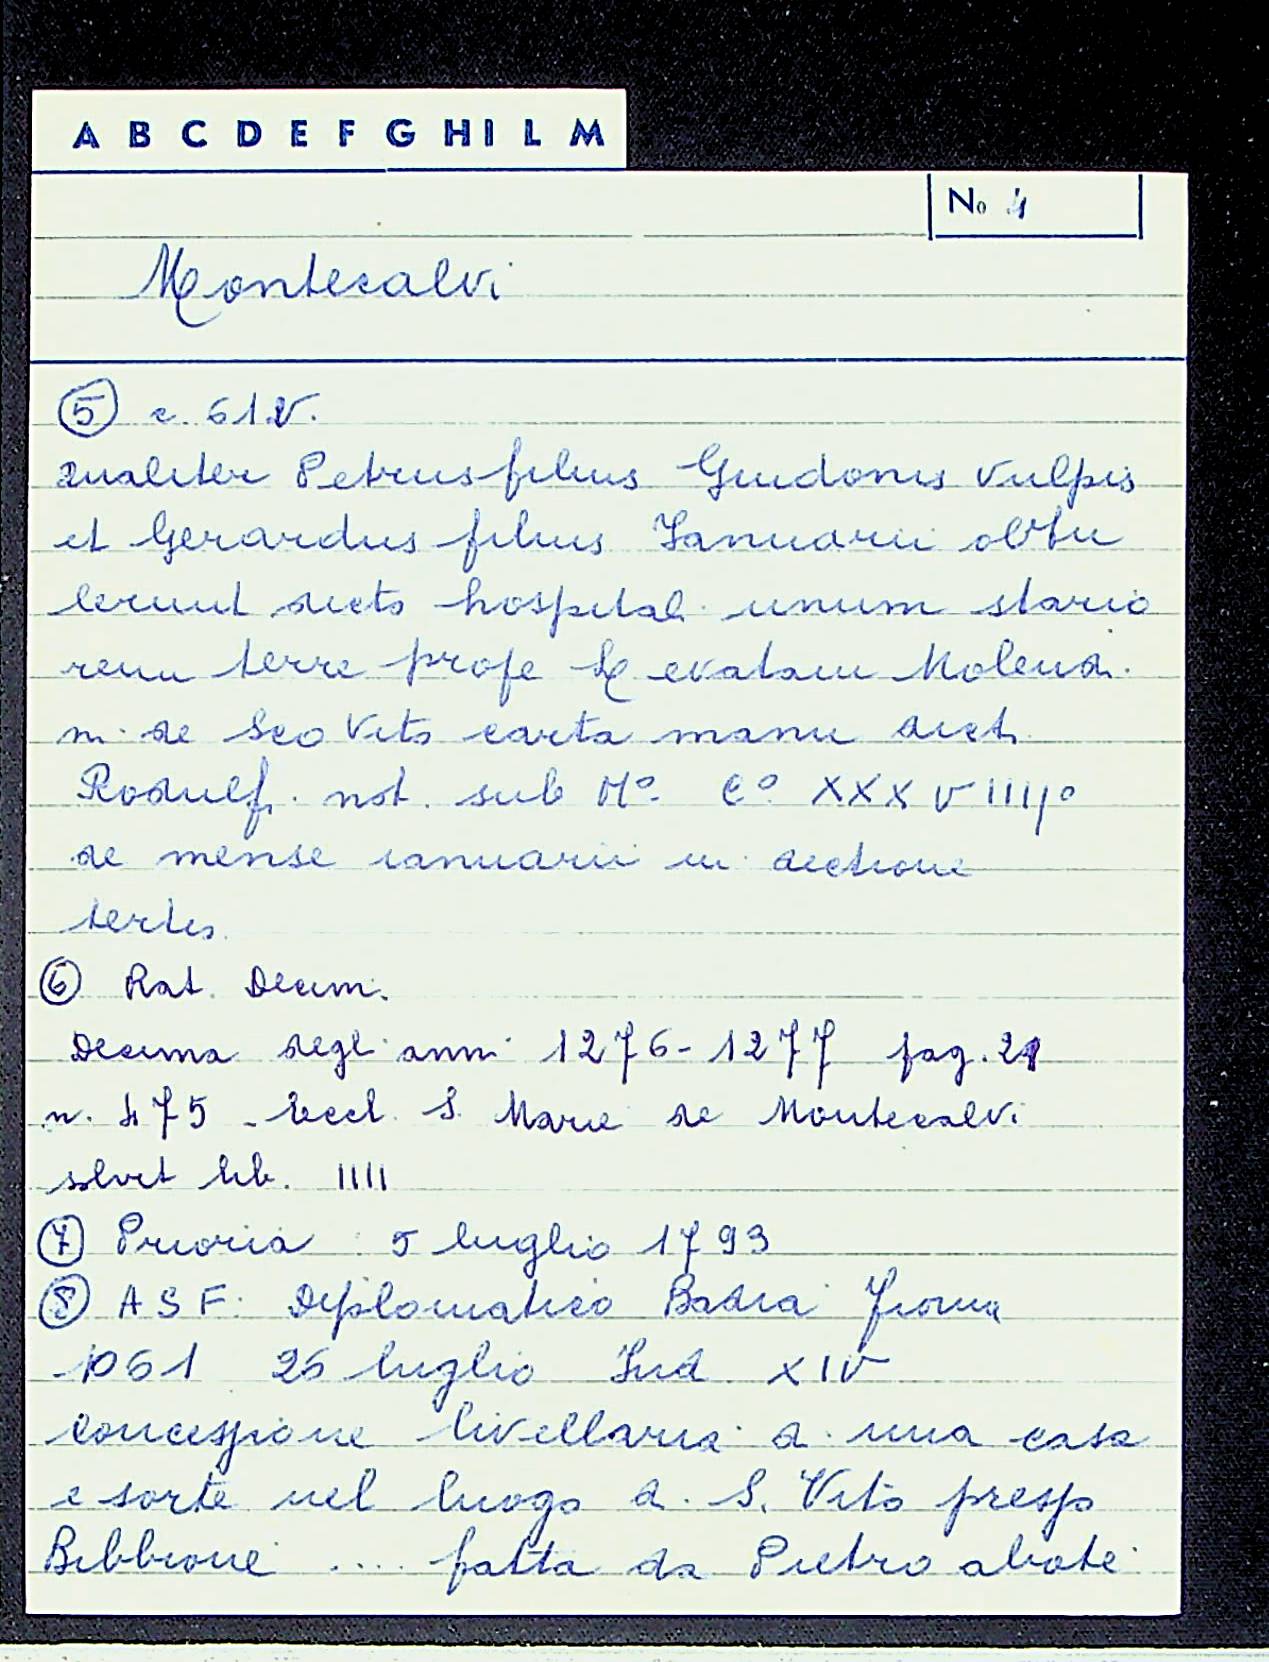 A B C D E F G H I L M
No 4
Montecalvi
⑤ c. 61.V.
qualiter Petrus filius Guidonis Vulpis
et Gerardus filius Ianuarii obtu
lerunt dicto hospital. unum stario
rem terre prope evatam Molend.
ni de Sco Vito carta manu dict.
Rodulf. not. sub Mo. Co XXXVIIIIo
de mense ianuarii in dictione
tertis.
⑥ Rat. Decim.
Decima degli anni 1276-1277 pag. 21
n. 475 - Eccl. S. Marie de Montecalvi
solvit lib. IIII
⑦ Prioria : 5 luglio 1793
⑧ A S F: Diplomatico Badia Fiorna
1061 26 luglio Ind XIV
concessione livellaria d. una casa
e sorte nel luogo d. S. Vito presso
Bibbione .... fatta da Pietro abate